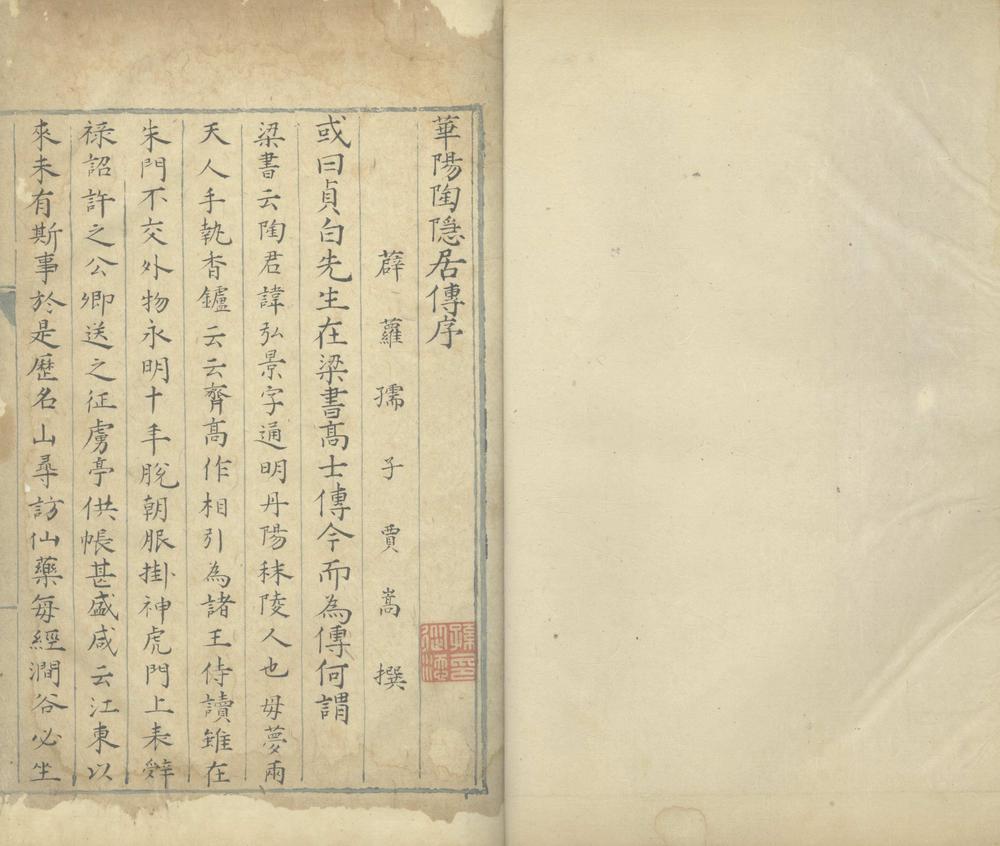 華陽陶隱居傳序
薜蘿孺子賈嵩撰
或曰貞白先生在梁書高士傳今而為傳何謂
梁書云陶君諱弘景字通明丹陽秣陵人也毋夢兩
天人手執香鑪云云齊高作相引為諸王侍讀雖在
朱門不交外物永明十年脫朝服掛神虎門上表辤
祿詔許之公卿送之征虜亭供帳甚盛咸云江東以
來未有斯事於是歷名山尋訪仙藥每經澗谷必坐